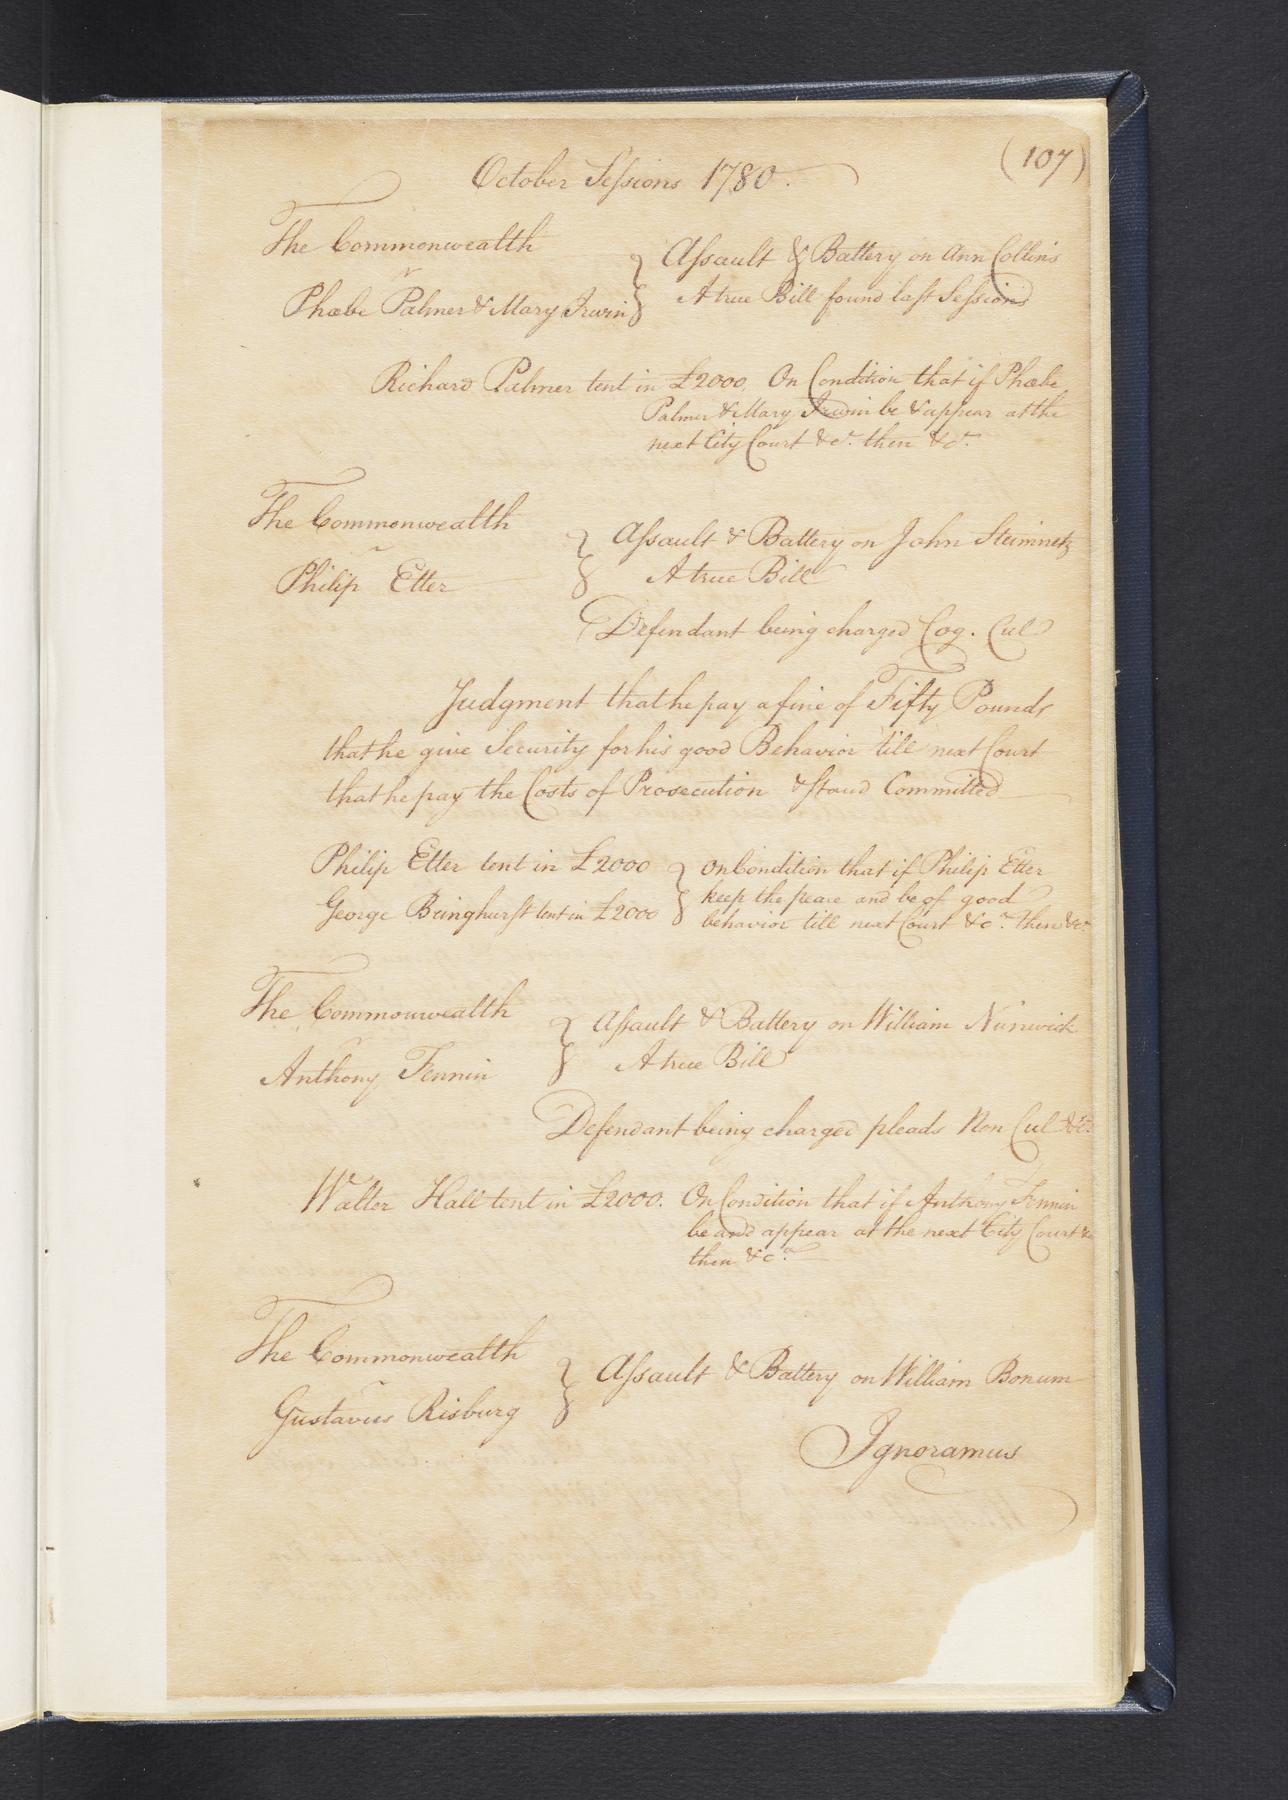 (107)
October Sessions 1780.
The Commonwealth
v
Phœbe Palmer & Mary Irwin
Assault & Battery on Ann Collins
A true Bill found last Sessions
Richard Palmer tent in £2000. On Condition that if Phœbe
Palmer & Mary Irwin be & appear at the
next City Court &ca. then &ca.
The Commonwealth
v
Philip Etter
Assault & Battery on John Steinmetz
A true Bill
Defendant being charged Cog. Cul
Judgment that he pay a fine of Fifty Pounds
that he give Security for his good Behavior till next Court
that he pay the Costs of Prosecution & stand Committed
Philip Etter tent in £2000
George Bringhurst tent in £2000
On Condition that if Philip Etter
keep the peace and be of good
behavior till next Court &ca. then &ca.
The Commonwealth
v
Anthony Fennin
Assault & Battery on William Nunwick
A true Bill
Defendant being charged pleads Non Cul &c.
Walter Hall tent in £2000. On Condition that if Anthony Fennin
be and appear at the next City Court &c
then &ca.
The Commonwealth
v
Gustavus Risburg
Assault & Battery on William Bonum
Ignoramus